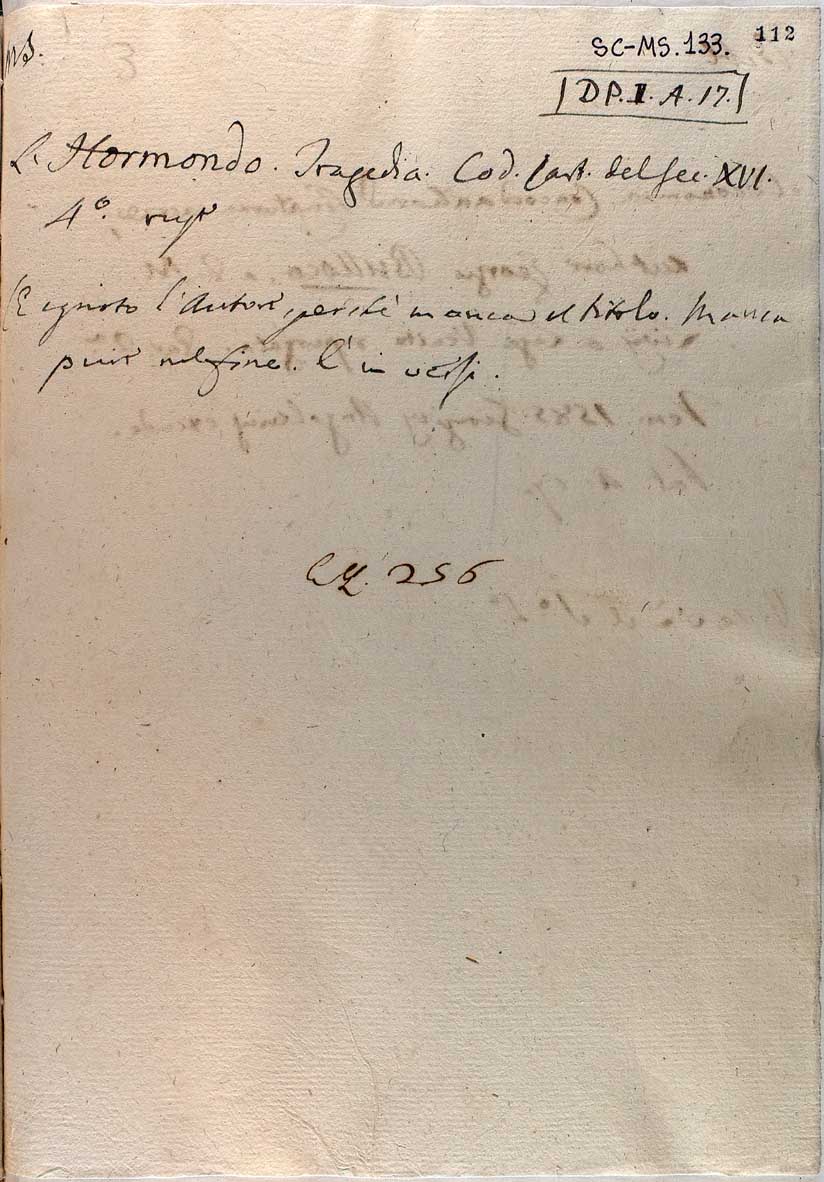 112
SC-MS. 133.
DP. I. A. 17.
MS.
L'Hormondo. Tragedia. Cod. cart. del sec. XVI.
4°.
(È ignoto l'Autore, perchè manca il titolo. Manca
pure nel fine. È in versi.
256